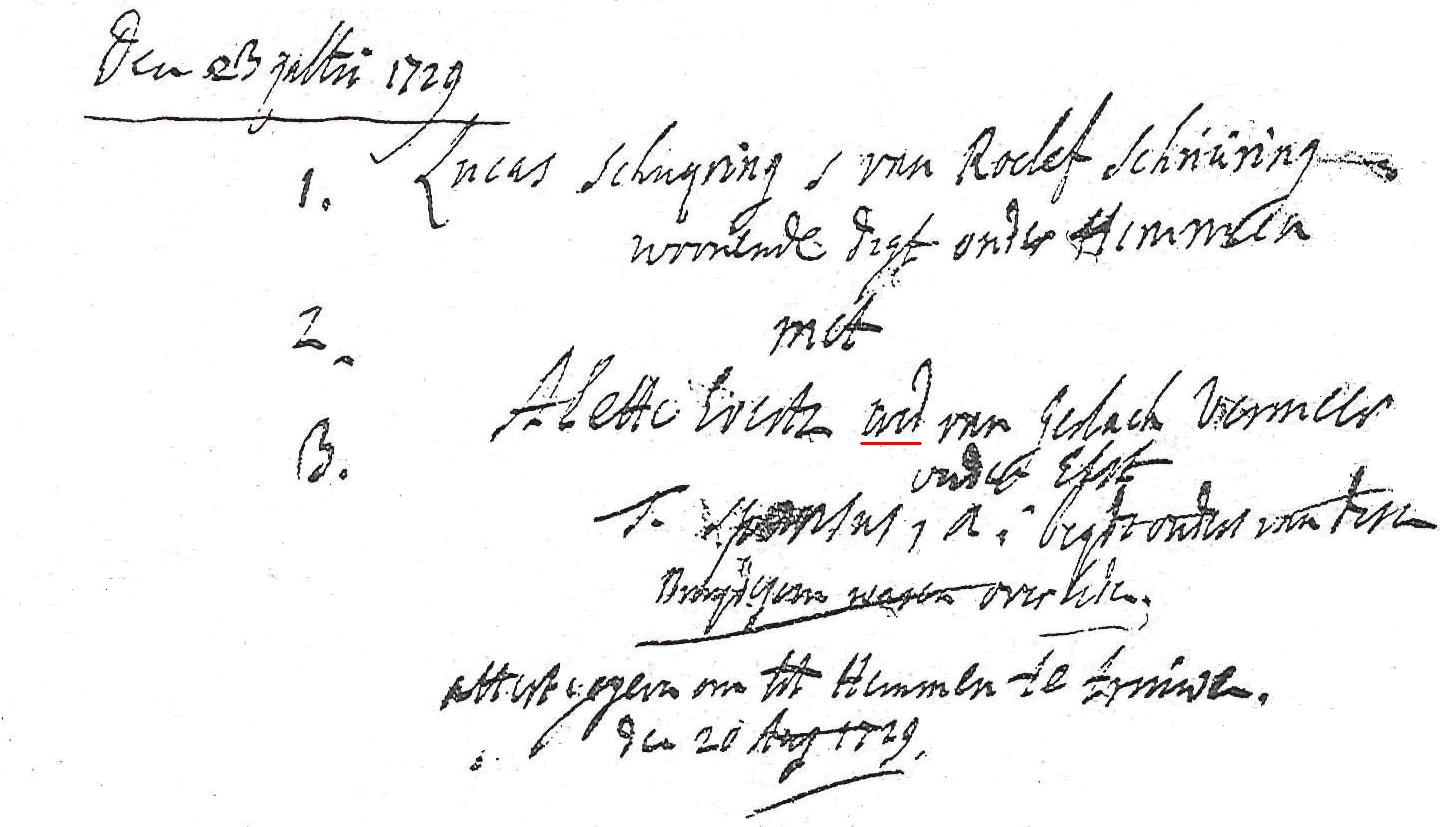 Den 23 1729
1. Lucas Schuyring s van Roelef Schnüring
woonende digt onder Hemmen
2. met
Alette Evertz wed van Gerlach Vermeer
3. onder Elst
S. a: ouders van desen
waren overleden.
attest gegeven om tot Hemmen te trouwen.
den 20 Aug 1729.